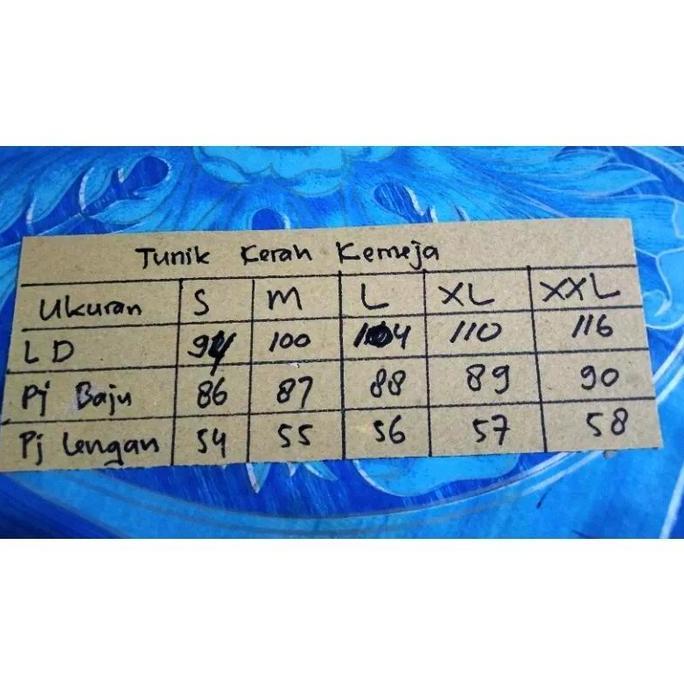 Tunik Kerah Kemeja
Ukuran S M L XL XXL
LD 94 100 104 110 116
Pj Baju 86 87 88 89 90
Pj Lengan 54 55 56 57 58